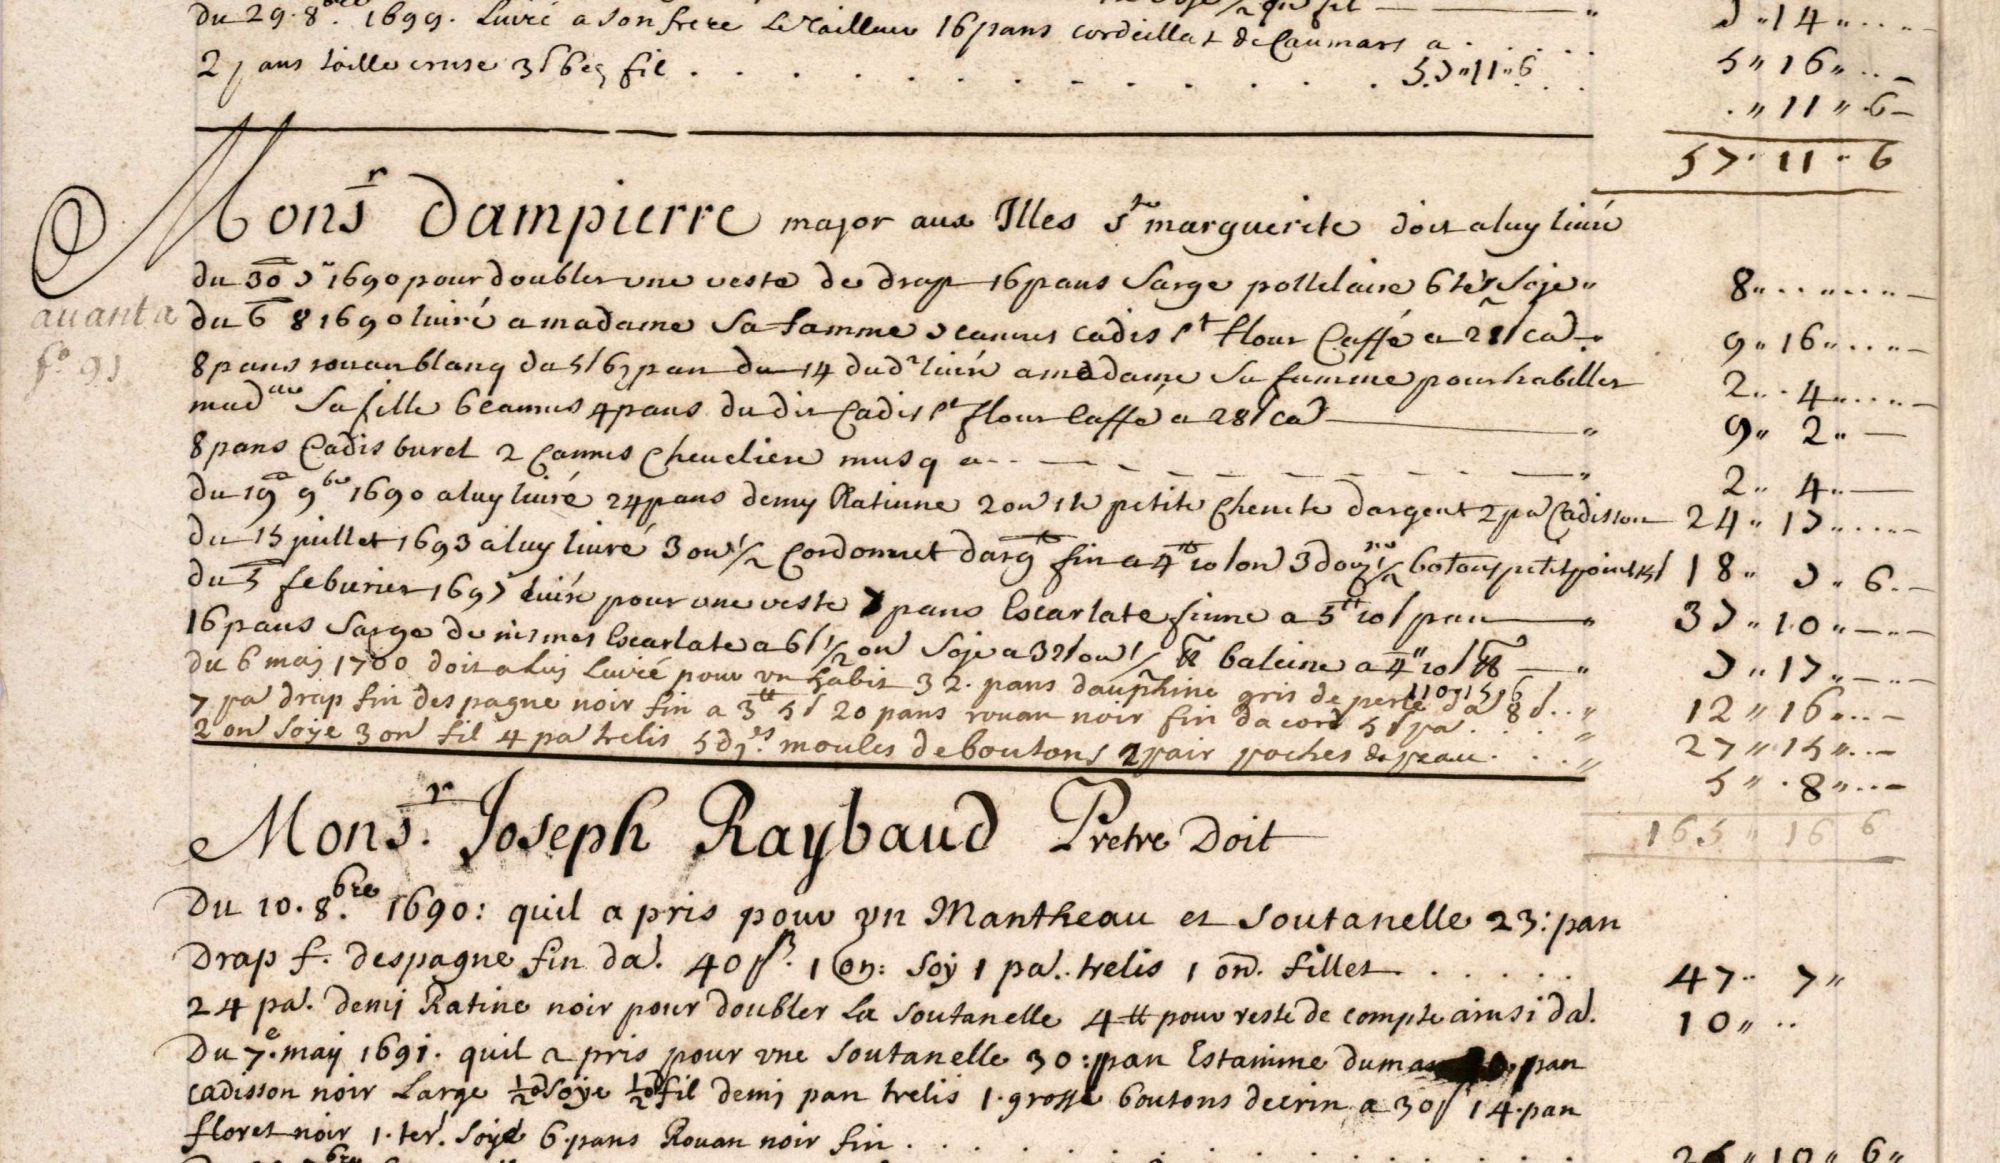 du 29. 8bre. 1699. Livré a son frere Le Tailleur 16 pans cordeillat de Caumars a . . . . . " 5 " 16 " . . .
2 pans toille cruse 3 s 6 eg fil . . . . . . . 57 " 11 " 6 . " 11 " 6
57 " 11 " 6
Monsr. Dampierre major aux Illes Ste marguerite doit a luy livré
du 30 7r 1690 pour doubler une veste de drap 16 pans Sarge 6 ters Soje " 8 " . . . . . .
auant a
fo 93
du 6 8 1690 livré a madame Sa famme 7 cannes Cadis St flour Caffé a 28 s ca 9 " 16 " . . . .
8 pans rouan blanq da 5 s 6 pan du 14 dud livré a madame Sa femme pour habiller 2 " 4 " . . . .
madlle Sa fille 6 cannes 4 pans du dit Cadis St flour Caffé a 28 s ca " 9 " 2 " —
8 pans Cadis buret 2 Cannes Cheveliere musq a - - - " 2 " 4 " —
du 19 9bre 1690 a luy livré 24 pans demy Ratinne 2 on petite Chenete dargent 2 pa Cadisson 24 " 17 " . . . .
du 15 juillet 1693 a luy livré 3 on 1/2 Cordonnet darg fin a 4 tt 10 s on 3 douz 1/2 botons petit point 18 " 7 " 6 . -
du 5 feburier 1697 livré pour une veste 7 pans Escarlate finne a 5 tt 10 s pan " 37 " 10 " - - -
16 pans Sarge de nismes Escarlate a 6 s 1/2 on Soje a 32 s on 1/2 tt baleine a 4 tt 10 s tt " 7 " 17 " - - -
du 6 maj 1700 doit a luy Livré pour un habit 32 . pans dauphine gris de perle da 8 s . . " 12 " 16 " . . -
110 " 15 " 6
7 pa drap fin despagne noir fin a 3 tt 5 s 20 pans rouan noir fin da cord 5 s pa . . . . " 27 " 15 " . . -
2 on Soye 3 on fil 4 pa trelis 5 djes moules de boutons 2 pair poches de peau . . . " 5 " . 8 " . . -
165 " 16 6
Monsr. Joseph Raybaud Pretre Doit
Du 10. 8.bre 1690: quil a pris pour vn Mantheau et Soutanelle 23: pan
Drap f. despagne fin da. 40 s. 1 on: Soy 1 pa. trelis 1 on. fillet . . . . . 47 " 7 "
24 pa. demj Ratine noir pour doubler La Soutanelle 4 tt pour reste de compte ainsi da. 10 " . .
Du 7.e may 1691. quil a pris pour vne Soutanelle 30: pan Estamine pan
cadisson noir Large 1/2 d Soye 1/2 d fil demj pan trelis 1. grosse boutons de crin a 30 s 14. pan
floret noir 1. ter. Soye 6. pans Rouan noir fin . . . . . . . 26 " 10 " 6 "